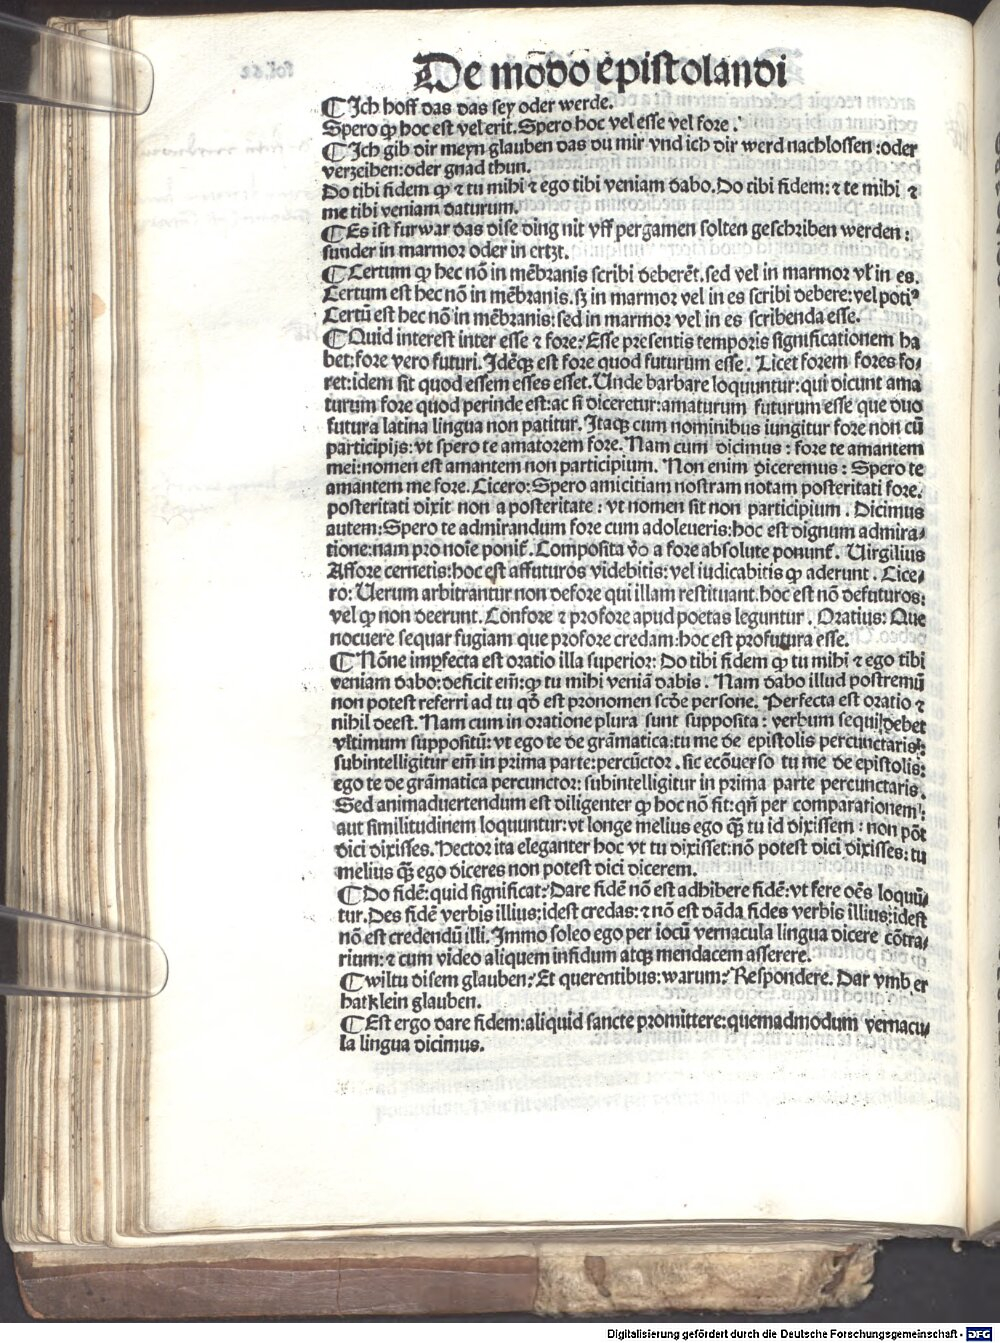 De mōdo epistolandi
¶ Ich hoff das das sey oder werde.
Spero ꝙ hoc est vel erit. Spero hoc vel esse vel fore.
¶ Ich gib dir meyn glauben das du mir vnd ich dir werd nachlossen: oder
verzeihen: oder gnad thun.
Do tibi fidem ꝙ ⁊ tu mihi ⁊ ego tibi veniam dabo. Do tibi fidem: ⁊ te mihi ⁊
me tibi veniam daturum.
¶ Es ist furwar das dise ding nit vff pergamen solten geschriben werden:
sunder in marmor oder in ertzt.
¶ Certum ꝙ hec nō in mēbranis scribi deberēt. sed vel in marmor vl̄ in es.
Certum est hec nō in mēbranis. sꝫ in marmor vel in es scribi debere: vel potiꝰ
Certū est hec nō in mēbranis: sed in marmor vel in es scribenda esse.
¶ Quid interest inter esse ⁊ fore? Esse presentis temporis significationem ha
bet: fore vero futuri. Idēqꝫ est fore quod futurum esse. Licet forem fores fo-
ret: idem sit quod essem esses esset. Unde barbare loquuntur: qui dicunt ama
turum fore quod perinde est: ac si diceretur: amaturum futurum esse que duo
futura latina lingua non patitur. Itaqꝫ cum nominibus iungitur fore non cū
participijs: vt spero te amatorem fore. Nam cum dicimus: fore te amantem
mei: nomen est amantem non participium. Non enim diceremus: Spero te
amantem me fore. Cicero: Spero amicitiam nostram notam posteritati fore.
posteritati dixit non a posteritate: vt nomen sit non participium. Dicimus
autem: Spero te admirandum fore cum adoleueris: hoc est dignum admira-
tione: nam pro noīe ponit̄. Composita v̄o a fore absolute ponunt̄. Uirgilius
Affore cernetis: hoc est affuturos videbitis: vel iudicabitis ꝙ aderunt. Cice-
ro: Uerum arbitrantur non defore qui illam restituant. hoc est nō defuturos:
vel ꝙ non deerunt. Confore ⁊ profore apud poetas leguntur. Oratius: Que
nocuere sequar fugiam que profore credam: hoc est profutura esse.
¶ Nōne imꝑfecta est oratio illa superior: Do tibi fidem ꝙ tu mihi ⁊ ego tibi
veniam dabo: deficit em̄: ꝙ tu mihi veniā dabis. Nam dabo illud postremū
non potest referri ad tu qō est pronomen scd̄e persone. Perfecta est oratio ⁊
nihil deest. Nam cum in oratione plura sunt supposita: verbum sequi debet
vltimum suppositū: vt ego te de grāmatica: tu me de epistolis percunctaris:
subintelligitur em̄ in prima parte: percūctor. sic ecōuerso tu me de epistolis:
ego te de grāmatica percunctor: subintelligitur in prima parte percunctaris.
Sed animaduertendum est diligenter ꝙ hoc nō fit: qn̄ per comparationem:
aut similitudinem loquuntur: vt longe melius ego qꝫ̄ tu id dixissem: non pōt
dici dixisses. Hector ita eleganter hoc vt tu dixisset: nō potest dici dixisses: tu
melius qꝫ̄ ego diceres non potest dici dicerem.
¶ Do fidē: quid significat? Dare fidē nō est adhibere fidē: vt fere oēs loquū-
tur. Des fidē verbis illius: idest credas: ⁊ nō est dāda fides verbis illius: idest
nō est credendū illi. Immo soleo ego per iocū vernacula lingua dicere cōtra-
rium: ⁊ cum video aliquem infidum atqꝫ mendacem asserere.
¶ wiltu disem glauben? Et querentibus: warum? Respondere. Dar vmb er
hat klein glauben.
¶ Est ergo dare fidem: aliquid sancte promittere: quemadmodum vernacu-
la lingua dicimus.
Digitalisierung gefördert durch die Deutsche Forschungsgemeinschaft - DFG